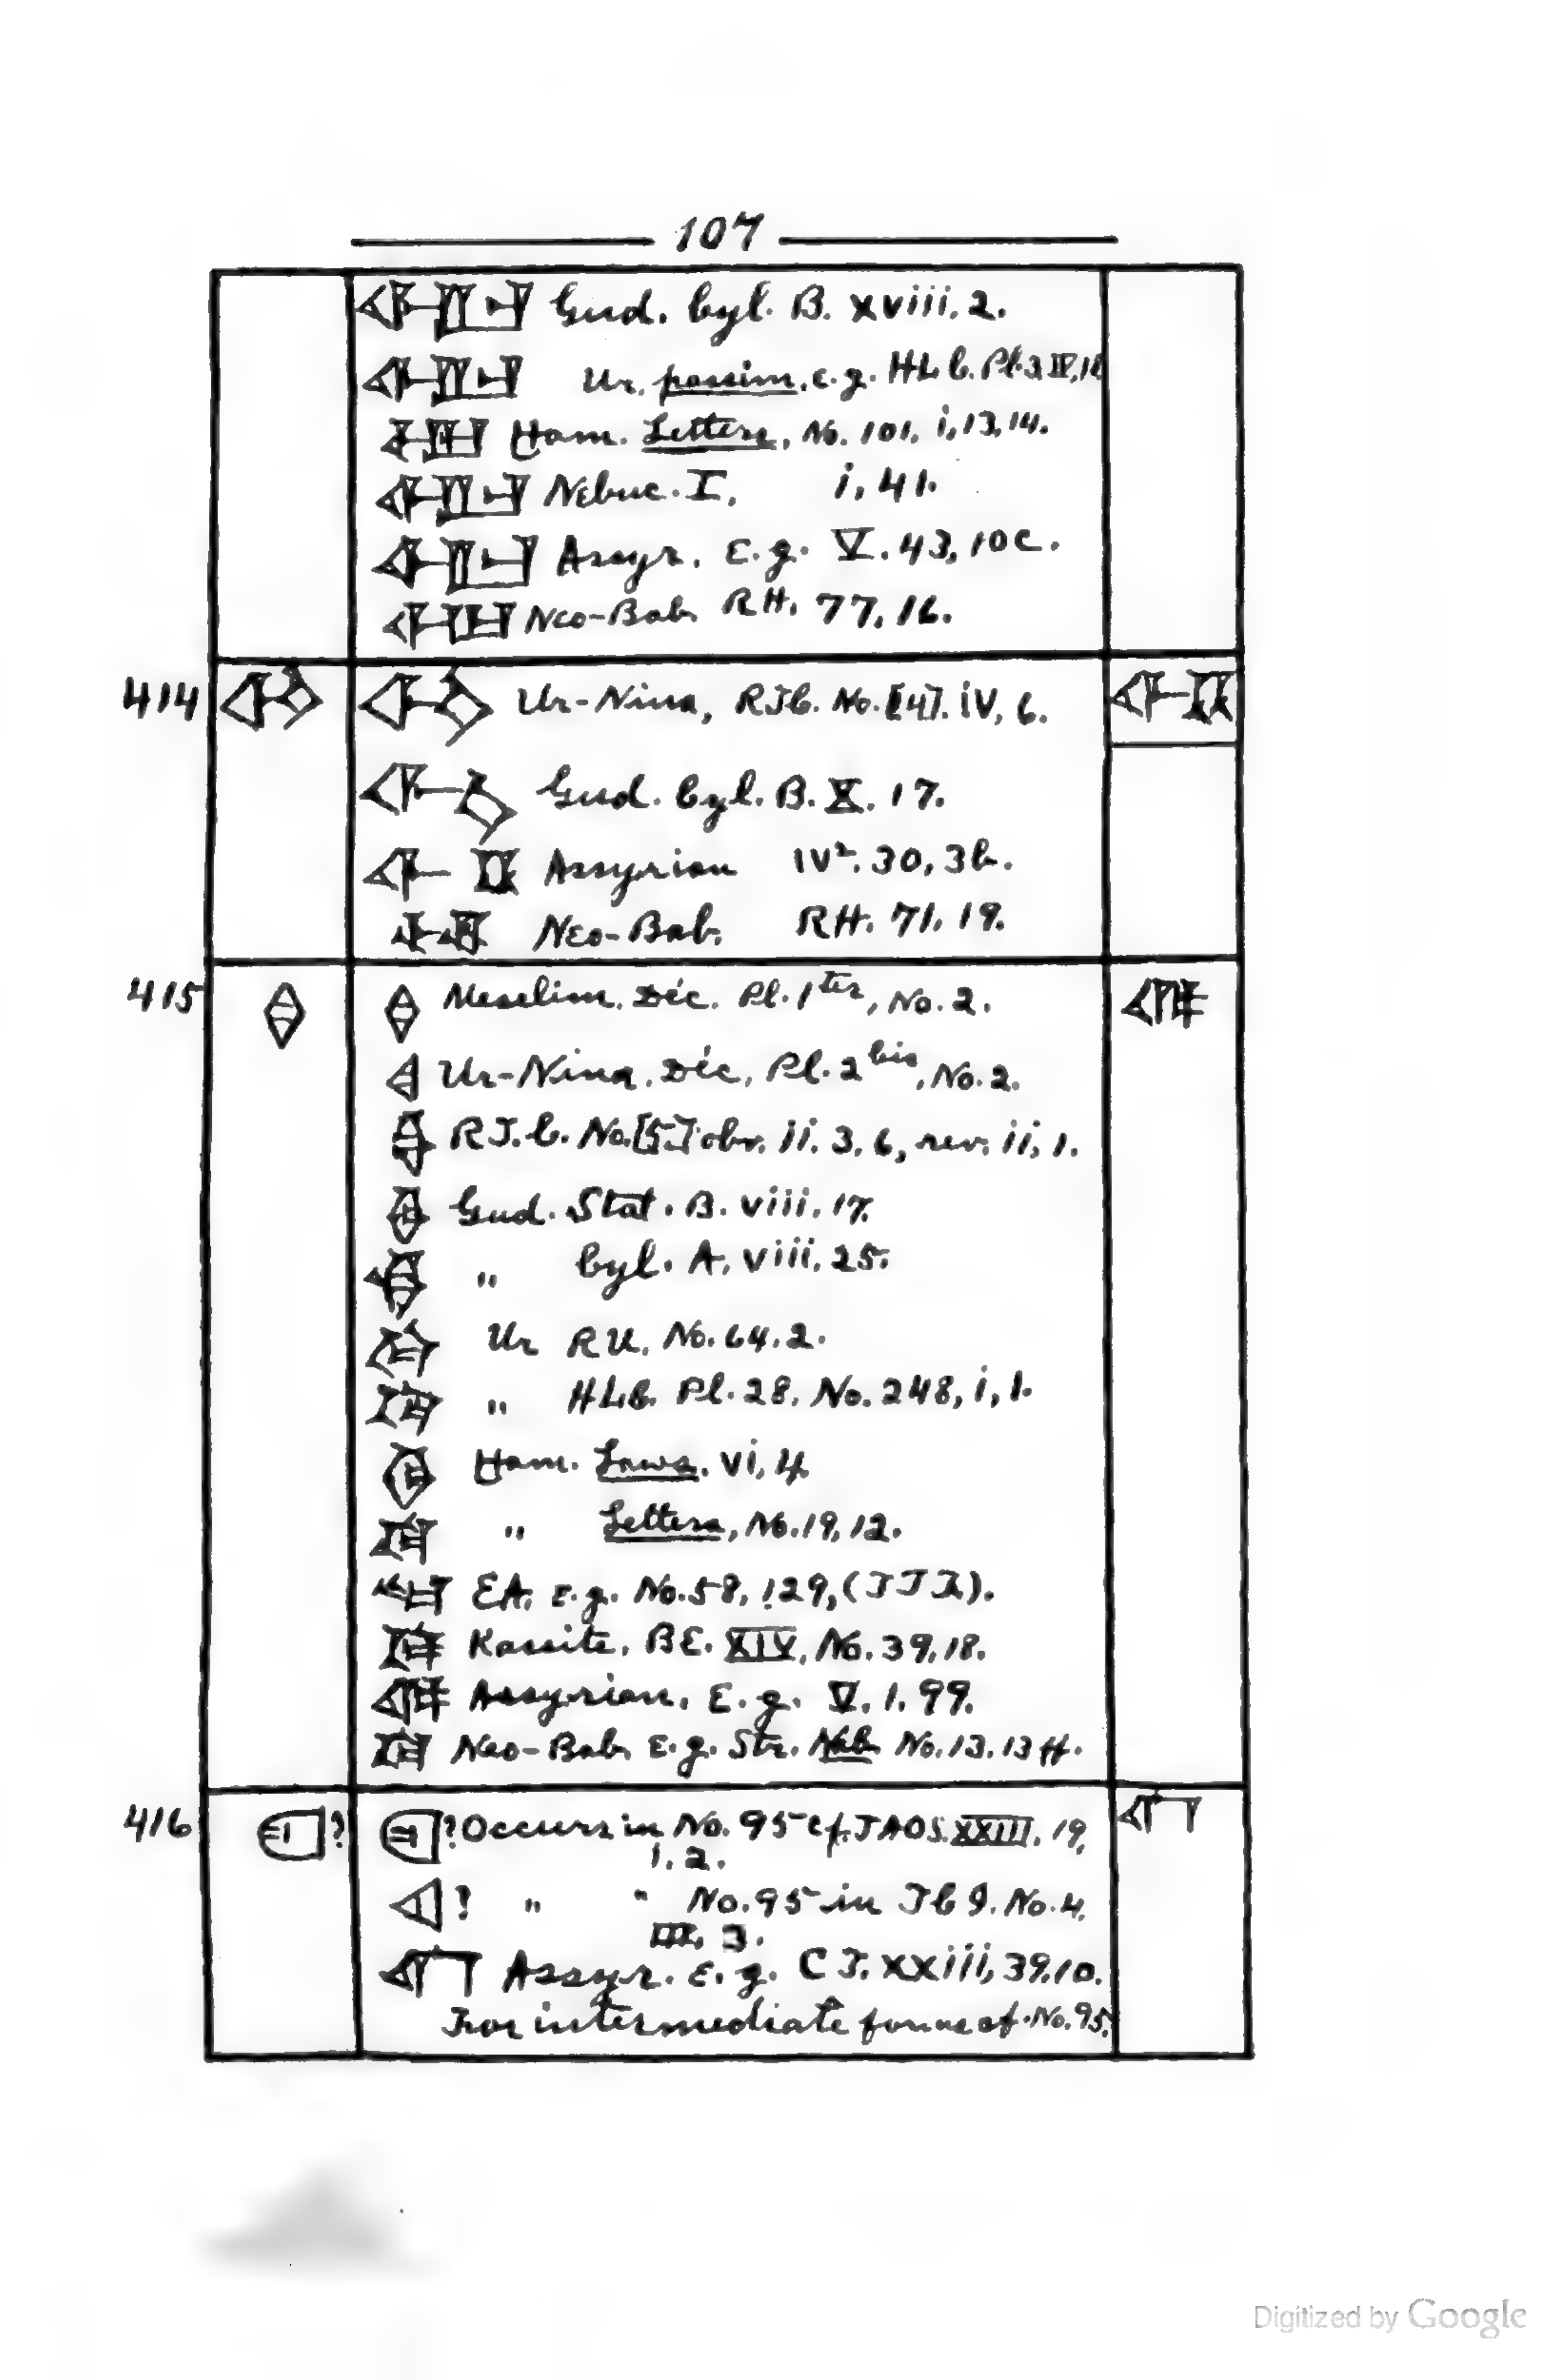 107
Gud. Cyl. B. xviii. 2.
Ur. passim. e.g. HLC. Pl. 3, IV,
Ḫam. Letters, No. 101, i, 13, 14.
Nebuc. I. i, 41.
Assyr. E.g. V. 43, 10c.
Neo-Bab. RH. 77, 16.
414 Ur-Nina, RTC. No. [4]. iv, 6.
Gud. Cyl. B. X. 17.
Assyrian IV². 30, 3b.
Neo-Bab. RH. 71, 19.
415 Meselim. Déc. Pl. 1ter, No. 2.
Ur-Nina. Déc, Pl. 2bis, No. 2.
RTC. No. [5] obv. ii. 3, 6, rev. ii, 1.
Gud. Stat. B. viii. 17.
" Cyl. A. viii. 25.
Ur RU. No. 64. 2.
" HLC. Pl. 28, No. 248, i, 1.
Ḫam. Laws. vi, 4.
" Letters, No. 19, 12.
EA. E.g. No. 58, 129,
Kassite. BE. XIV, No. 39, 18.
Assyrian. E.g. V. 1. 99.
Neo-Bab. E.g. Str. Nab. No. 13. 13 ff.
416 ? ? Occurs in No. 95 cf. JAOS. XXIII. 19,
1. 2.
? " " No. 95 in No. 4.
III, 3.
Assyr. E.g. CT. xxiii, 39, 10.
For intermediate forms cf. No. 95.
Digitized by Google